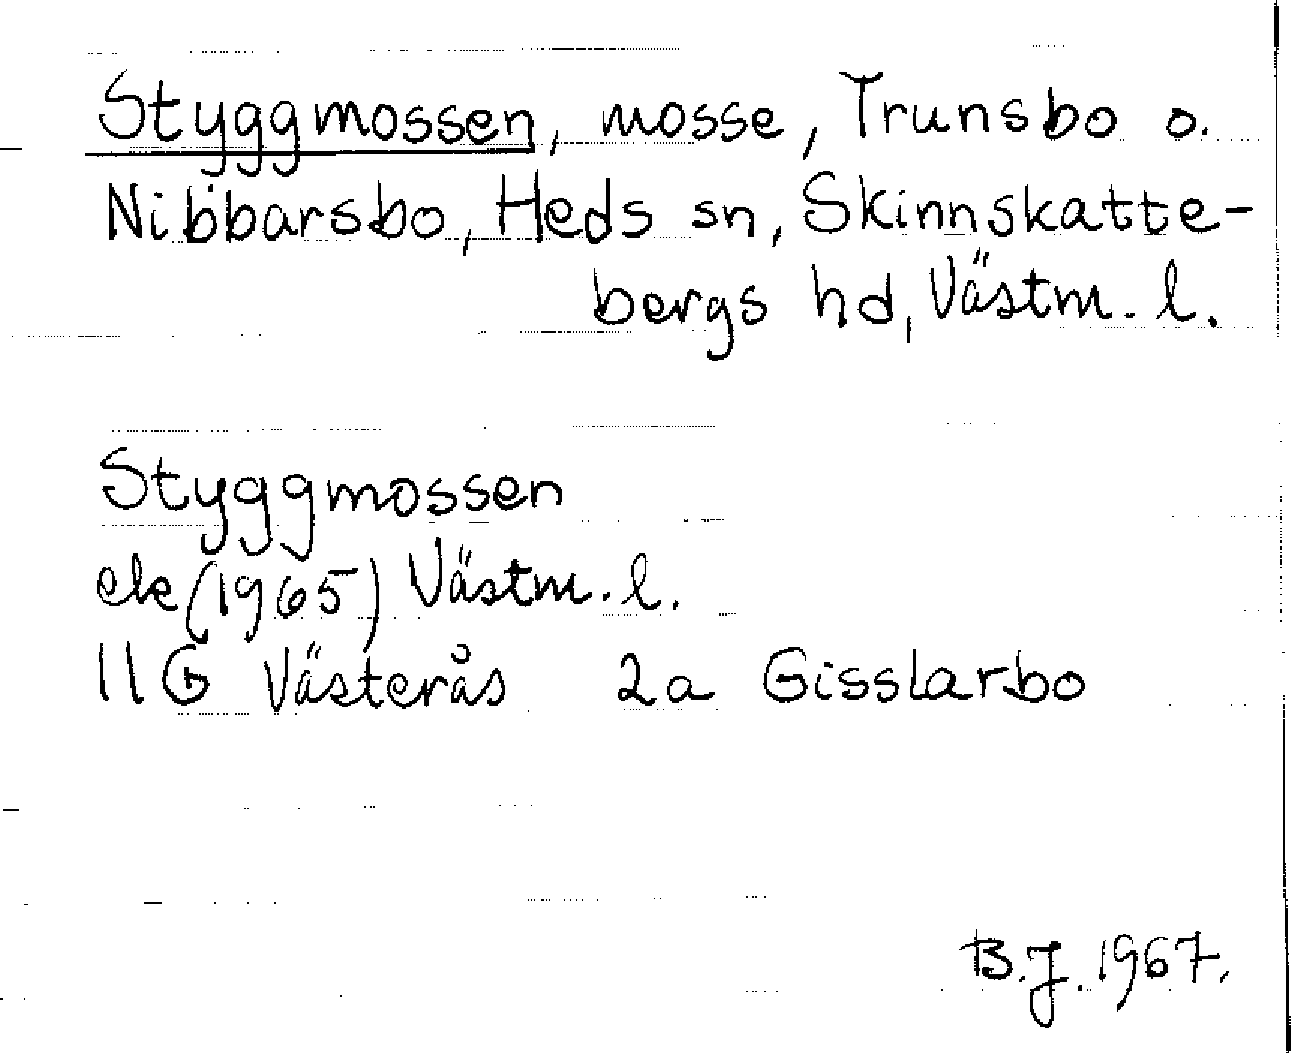 Styggmossen, mosse, Trunsbo o.
Nibbarsbo, Heds sn, Skinnskatte-
bergs hd, Västm. l.
Styggmossen
ek (1965) Västm. l.
11G Västerås 2a Gisslarbo
B.J. 1967.